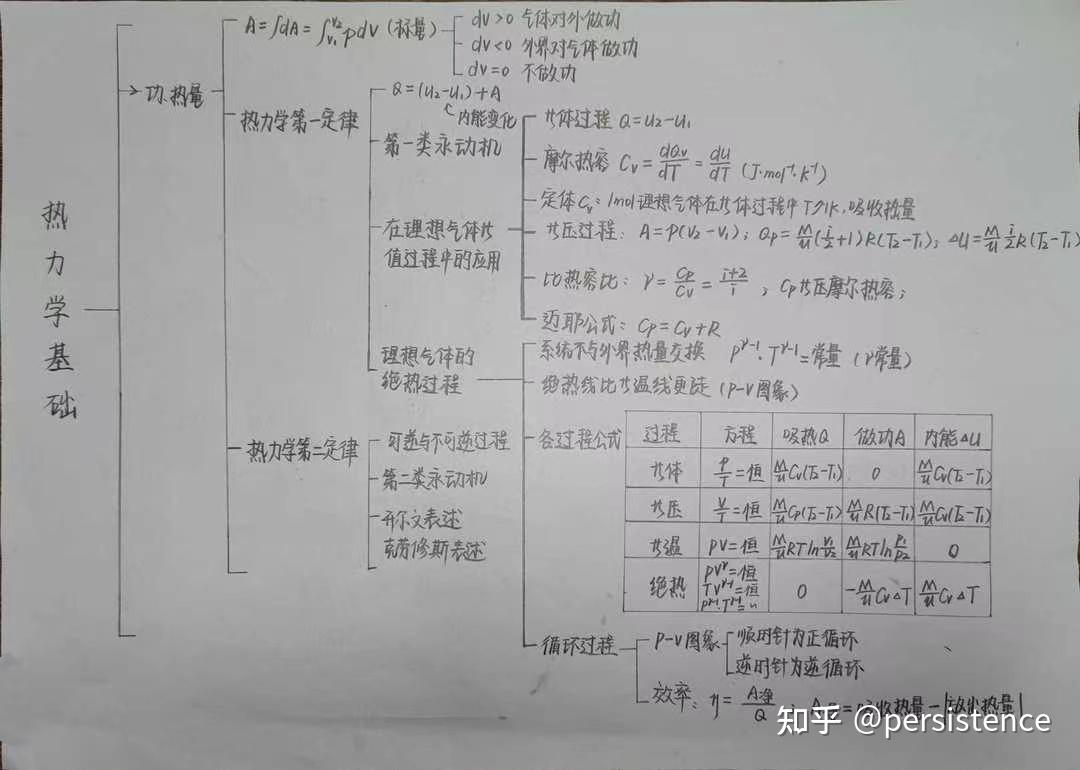 热力学基础
功、热量
A=∫dA=∫_{V₁}^{V₂}pdV (标量)
dV>0 气体对外做功
dV<0 外界对气体做功
dV=0 不做功
热力学第一定律
Q=(U₂-U₁)+A
内能变化
第一类永动机
在理想气体等
值过程中的应用
等体过程 Q=U₂-U₁
摩尔热容 Cv=dQv/dT=dU/dT (J·mol⁻¹·K⁻¹)
定体Cv:1mol理想气体在等体过程中T升1K,吸收热量
等压过程: A=P(V₂-V₁); Qp=M/u(i/2+1)R(T₂-T₁); ΔU=M/u i/2R(T₂-T₁)
比热容比: γ=Cp/Cv=i+2/i , Cp等压摩尔热容;
迈耶公式: Cp=Cv+R
理想气体的
绝热过程
系统不与外界热量交换 P^{γ-1}·T^{γ-1}=常量 (γ常量)
绝热线比等温线更陡 (P-V图象)
各过程公式
过程 方程 吸热Q 做功A 内能ΔU
等体 P/T=恒 M/uCv(T₂-T₁) 0 M/uCv(T₂-T₁)
等压 V/T=恒 M/uCp(T₂-T₁) M/uR(T₂-T₁) M/uCv(T₂-T₁)
等温 PV=恒 M/uRTln V₁/V₂ M/uRTln P₁/P₂ 0
绝热 PV^γ=恒 TV^{γ-1}=恒 P^{γ-1}·T^{γ-1}=〃 0 -M/uCvΔT M/uCvΔT
循环过程
P-V图象
顺时针为正循环
逆时针为逆循环
效率: η=A净/Q =吸收热量-|放出热量|
热力学第二定律
可逆与不可逆过程
第二类永动机
开尔文表述
克劳修斯表述
知乎 @persistence